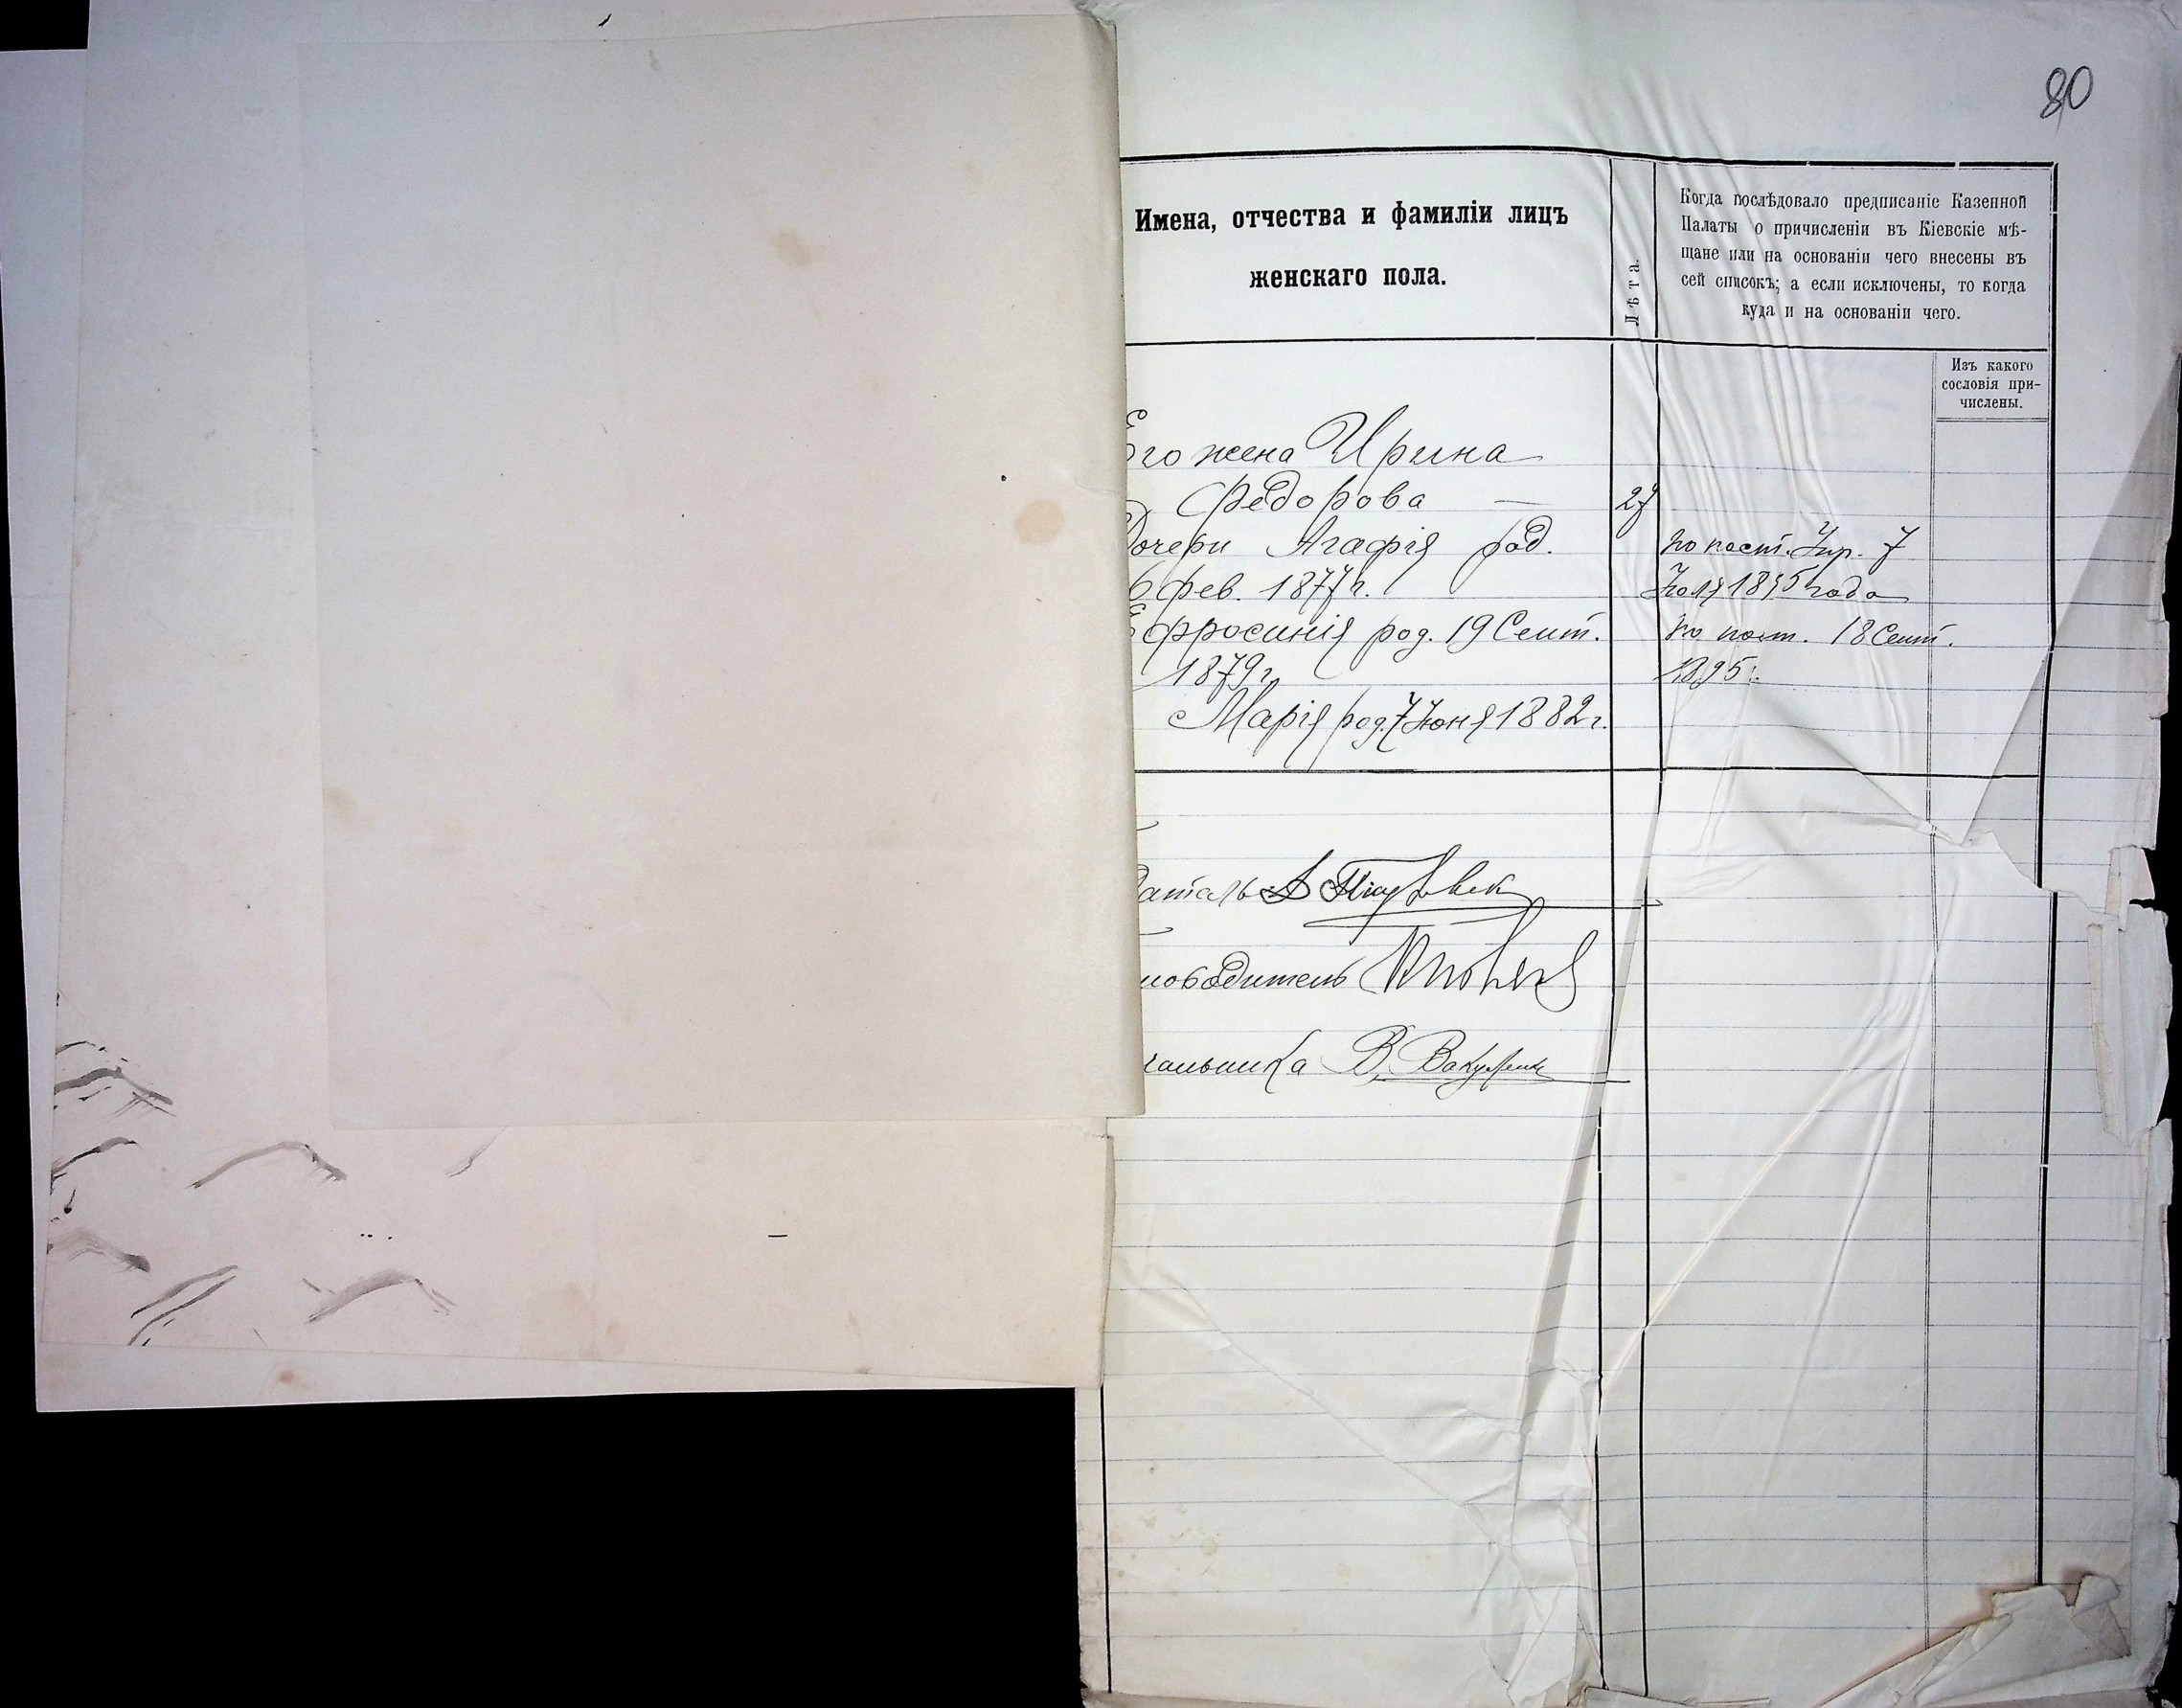 80
Имена, отчества и фамиліи лицъ
женскаго пола.
Лѣта.
Когда послѣдовало предписаніе Казенной
Палаты о причисленіи въ Кіевскіе мѣ-
щане или на основаніи чего внесены въ
сей списокъ; а если исключены, то когда
куда и на основаніи чего.
Изъ какого
сословія при-
числены.
Его жена Ирина
Федорова — 27
Дочери Агафія род.
6 фев. 1877 г.
Ефросинія род. 19 Сент.
1879 г.
Марія род. 7 Іюня 1882 г.
по пост. Упр. 7
Іюля 1895 года
по пост. 18 Сент.
1895 г.
датель
новодитель
чальника В. Вакуленк